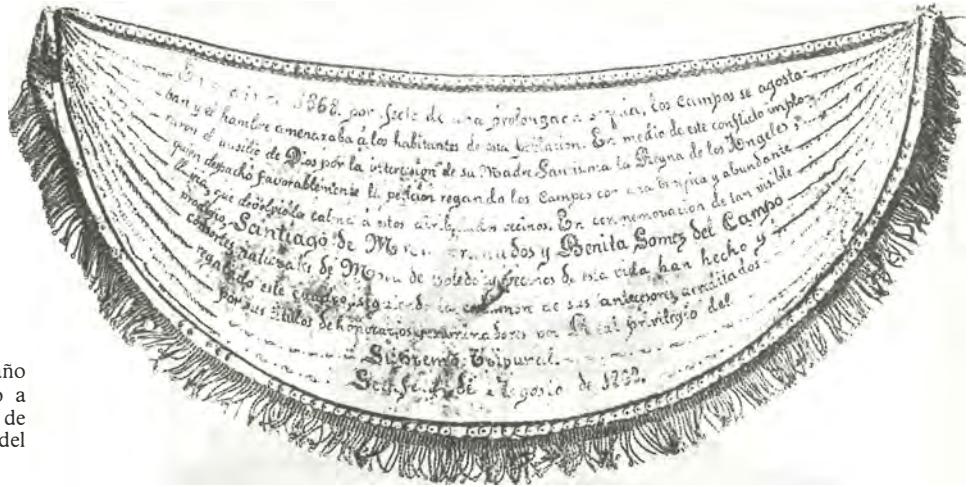 1868. por      de una prolongada sequia, los campos se agosta-
ban y el hambre amenazaba á los habitantes de esta           . En medio de este conflicto implo-
raron el ausilio de Dios por la intercesion de su Madre Santisima la Reyna de los Angeles;
quien despachó favorablemente la peticion regando los Campos con una benefica y abundante
lluvia, que devolvió la calma á estos              vecinos. En conmemoracion de tan visible
prodigio, Santiago de                y Benita Gomez del Campo
consortes naturales de Mora de Toledo y vecinos de esta villa han hecho y
regalado este cuadro, siguiendo la             de sus antecesores, acreditados
por sus titulos de honorarios                por Real privilegio del
Supremo Tribunal.
                         Agosto de
año
o a
de
del